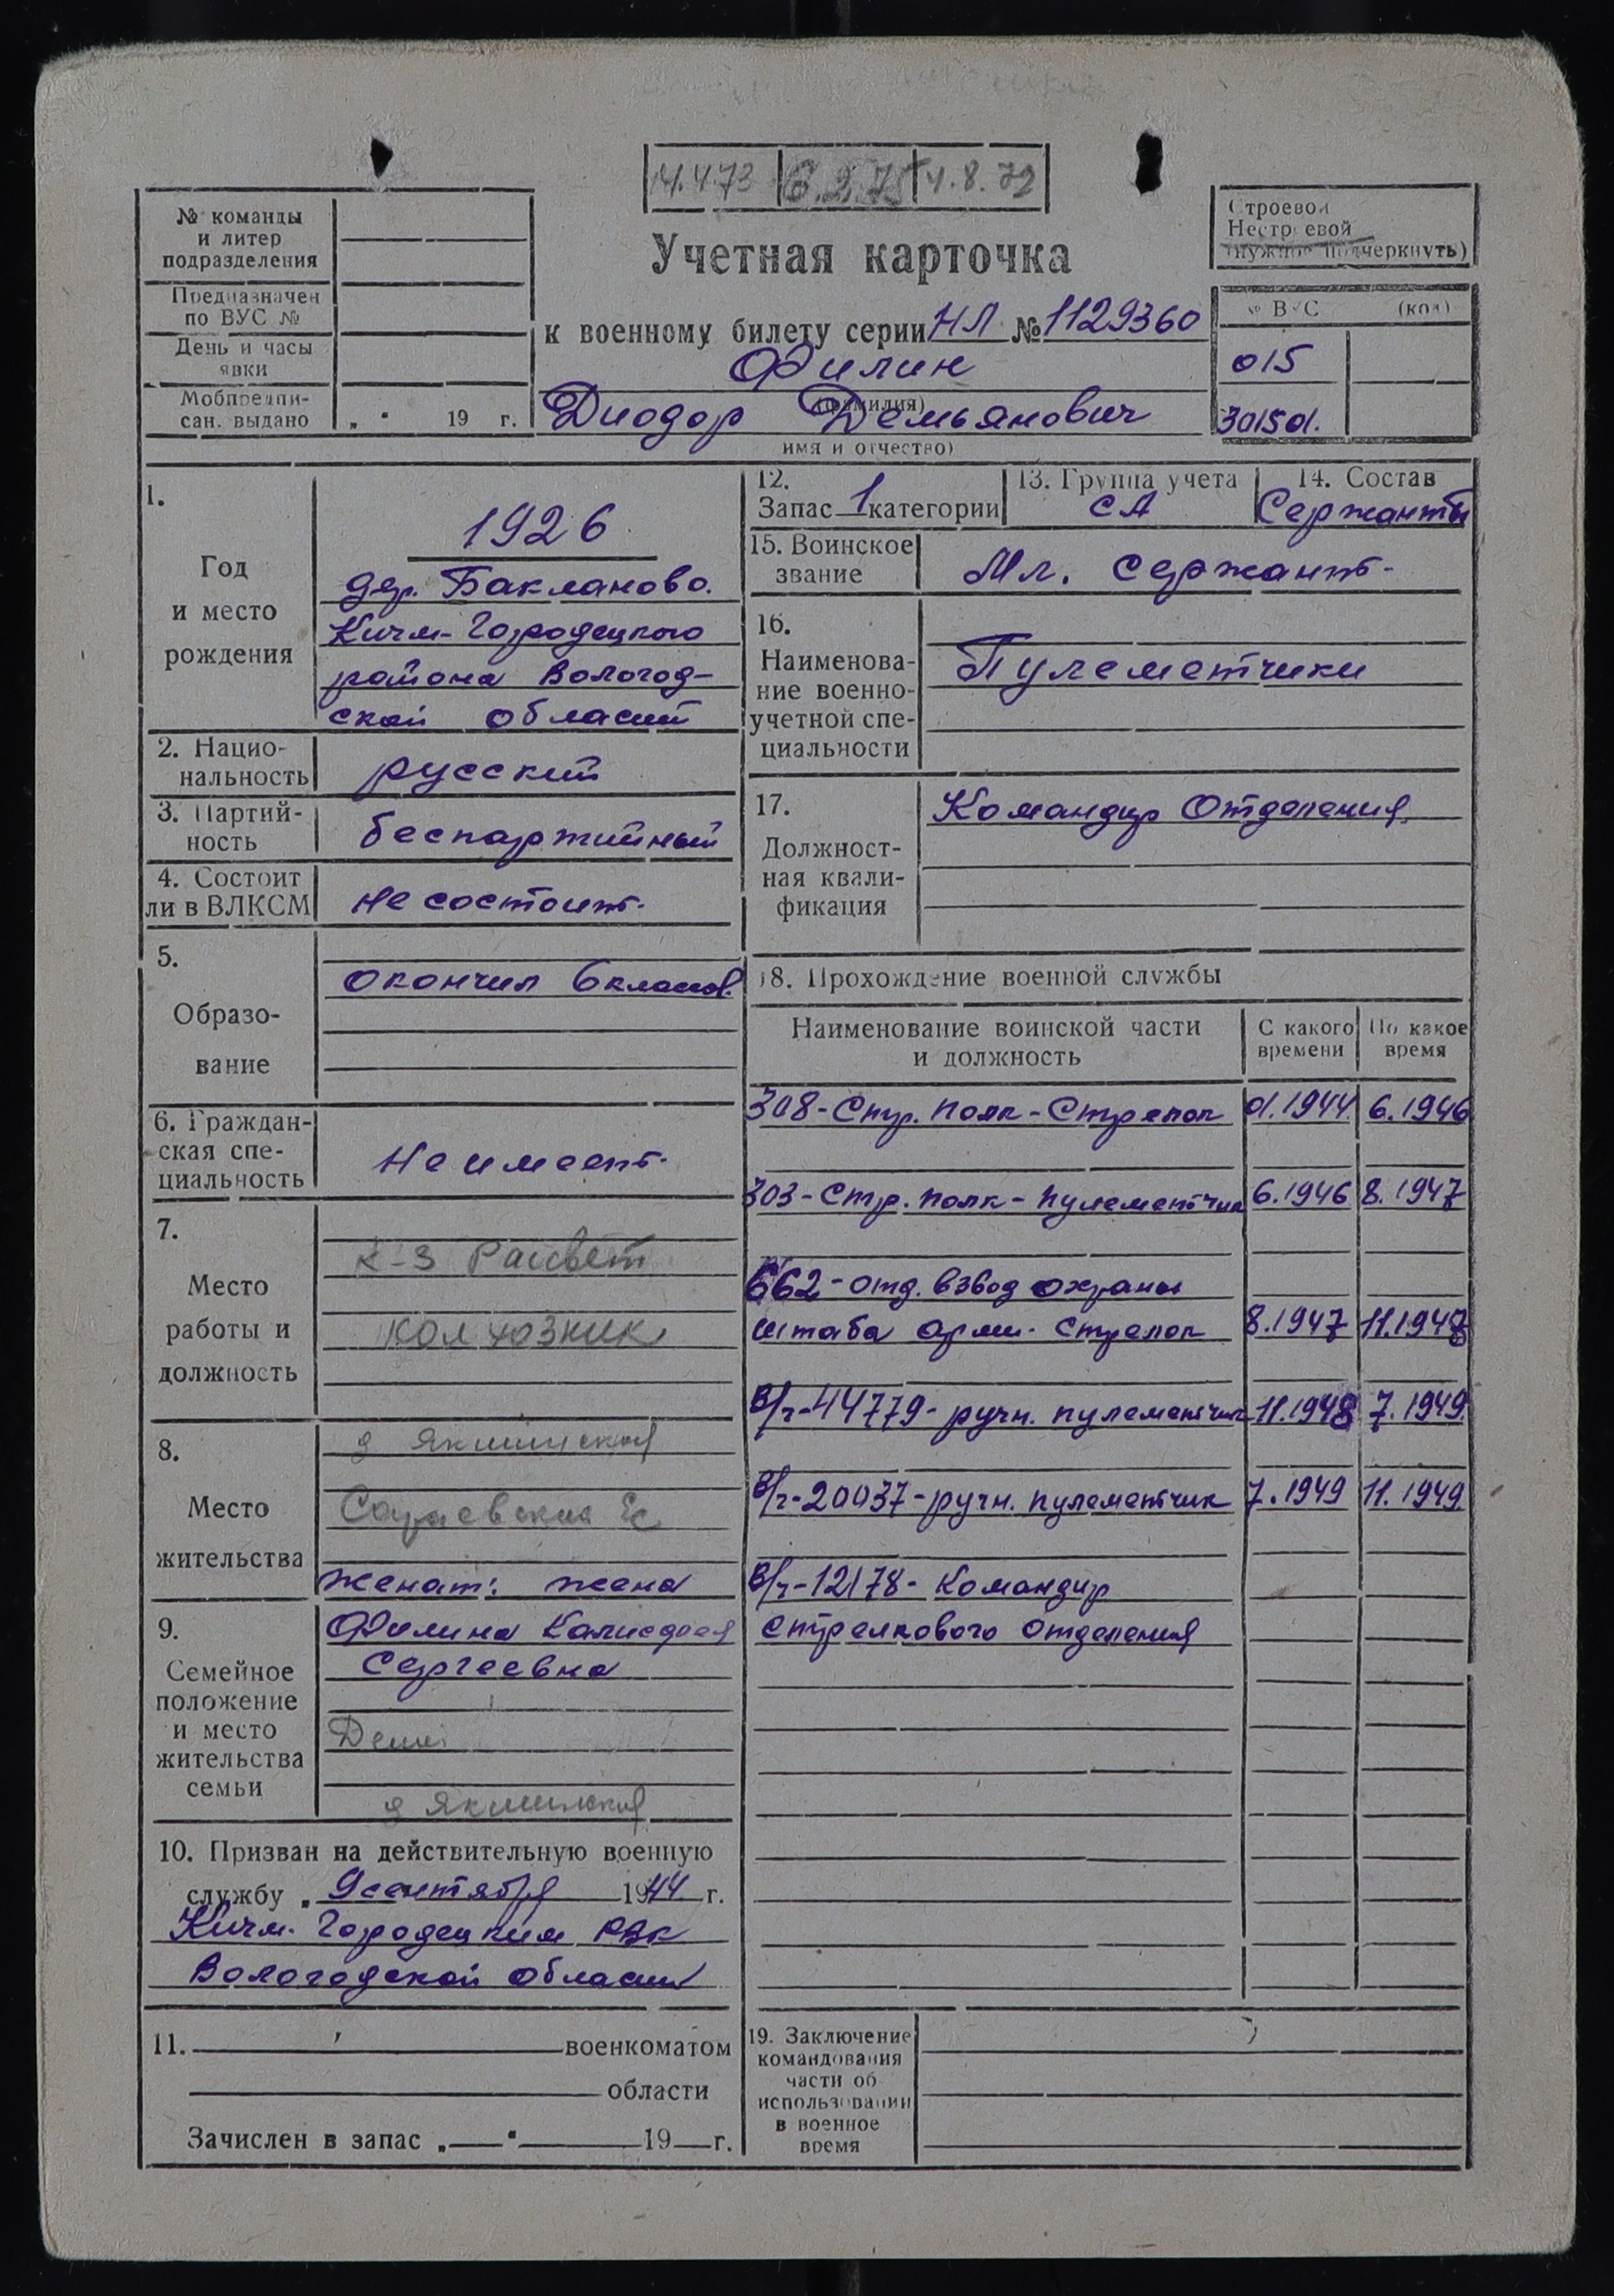 14.4.73 6.2.75 4.8.72
№ команды
и литер
подразделения
Предназначен
по ВУС №
День и часы
явки
Мобпредпи-
сан. выдано „ “ 19 г.
Учетная карточка
к военному билету серии НЛ № 1129360
Филин
(фамилия)
Диодор Демьянович
имя и отчество)
Строевой
Нестроевой
(нужное подчеркнуть)
№ ВУС (код)
015
301501.
1.
Год
и место
рождения
1926
дер. Бакланово.
Кичм-Городецкого
района Вологод-
ской области
2. Нацио-
нальность
русский
3. Партий-
ность
беспартийный
4. Состоит
ли в ВЛКСМ
не состоит.
5.
Образо-
вание
окончил 6 классов.
6. Граждан-
ская спе-
циальность
Не имеет.
7.
Место
работы и
должность
к-з Рассвет
колхозник
8.
Место
жительства
д Якшинская
Сараевский с/с
9.
Семейное
положение
и место
жительства
семьи
женат: жена
Филина
Сергеевна
Дети
д Якшинская
10. Призван на действительную военную
службу „ 9 сентября 1944 г.
Кичм-Городецким РВК
Вологодской области
11. военкоматом
области
Зачислен в запас „ “ 19 г.
12.
Запас 1 категории
13. Группа учета
СА
14. Состав
Сержанты
15. Воинское
звание
Мл. сержант.
16.
Наименова-
ние военно-
учетной спе-
циальности
Пулеметчики
17.
Должност-
ная квали-
фикация
Командир Отделения.
18. Прохождение военной службы
Наименование воинской части
и должность
С какого
времени
По какое
время
308-Стр. полк-Стрелок 01.1944 6.1946
303-Стр. полк-пулеметчик 6.1946 8.1947
662-отд. взвод охраны
штаба арми. Стрелок 8.1947 11.1948
В/ч-44779-ручн. пулеметчик 11.1948 7.1949.
В/ч-20037-ручн. пулеметчик 7.1949 11.1949.
В/ч-12178-Командир
стрелкового отделения
19. Заключение
командования
части об
использовании
в военное
время